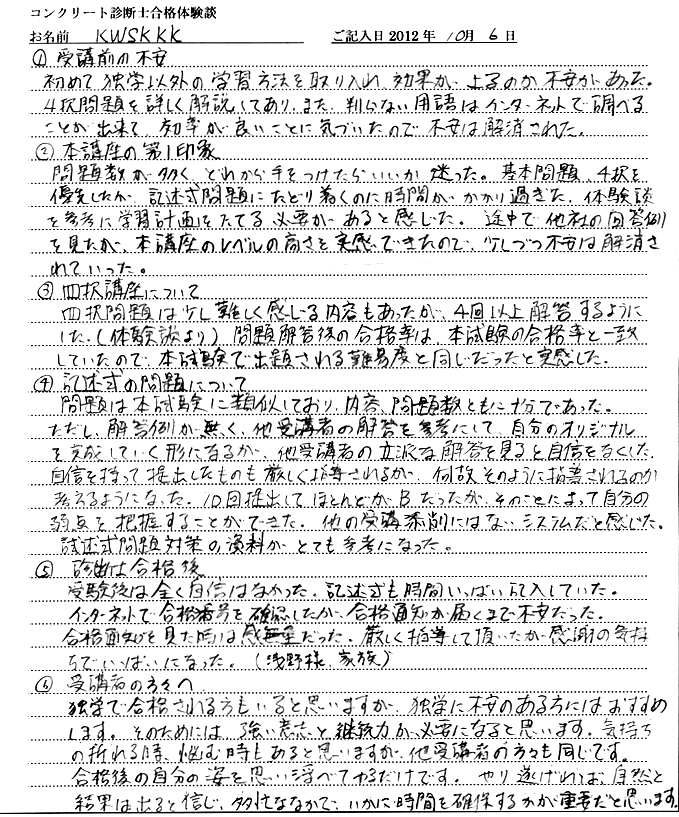 コンクリート診断士合格体験談
お名前 KWSKKK ご記入日2012年 10月 6日
① 受講前の不安
初めて独学以外の学習方法を取り入れ、効果が上るのか不安があった。
4択問題を詳しく解説してあり、また、判らない用語はインターネットで調べる
ことが出来て、効率が良いことに気づいたので不安は解消された。
② 本講座の第1印象
問題数が多く、どれから手をつけたらいいか迷った。基本問題、4択を
優先したが、記述式問題にたどり着くのに時間がかかり過ぎた。体験談
を参考に学習計画をたてる必要があると感じた。途中で他社の回答例
を見たが、本講座のレベルの高さを実感できたので、少しづつ不安は解消さ
れていった。
③ 四択講座について
四択問題は少し難しく感じる内容もあったが、4回以上解答するように
した。(体験談より) 問題解答後の合格率は、本試験の合格率と一致
していたので、本試験で出題される難易度と同じだったと実感した。
④ 記述式の問題について
問題は本試験に類似しており、内容、問題数ともに十分であった。
ただし、解答例が無く、他受講者の解答を参考にして、自分のオリジナル
を完成していく形になるが、他受講者の立派な解答を見ると自信をなくした。
自信を持って提出したものも厳しく指導されるが、何故そのように指導されるのか
考えるようになった。10回提出してほとんどがBだったが、そのことによって自分の
弱点を把握することができた。他の受講添削にはないシステムだと感じた。
試述式問題対策の資料がとても参考になった。
⑤ 合格後
受験後は全く自信はなかった。記述式も時間いっぱい記入していた。
インターネットで合格番号を確認したが、合格通知が届くまで不安だった。
合格通知を見た時は感無量だった。厳しく指導して頂いたが感謝の気持
ちでいっぱいになった。(浅野様、家族)
⑥ 受講者の方々へ
独学で合格される方もいると思いますが、独学に不安のある方にはおすすめ
します。そのためには、強い意志と継続力が必要になると思います。気持ち
の折れる時、悩む時もあると思いますが、他受講者の方々も同じです。
合格後の自分の姿を思い浮べてやるだけです。やり遂げれば、自然と
結果は出ると信じ、多忙ななかで、いかに時間を確保するかが重要だと思います。